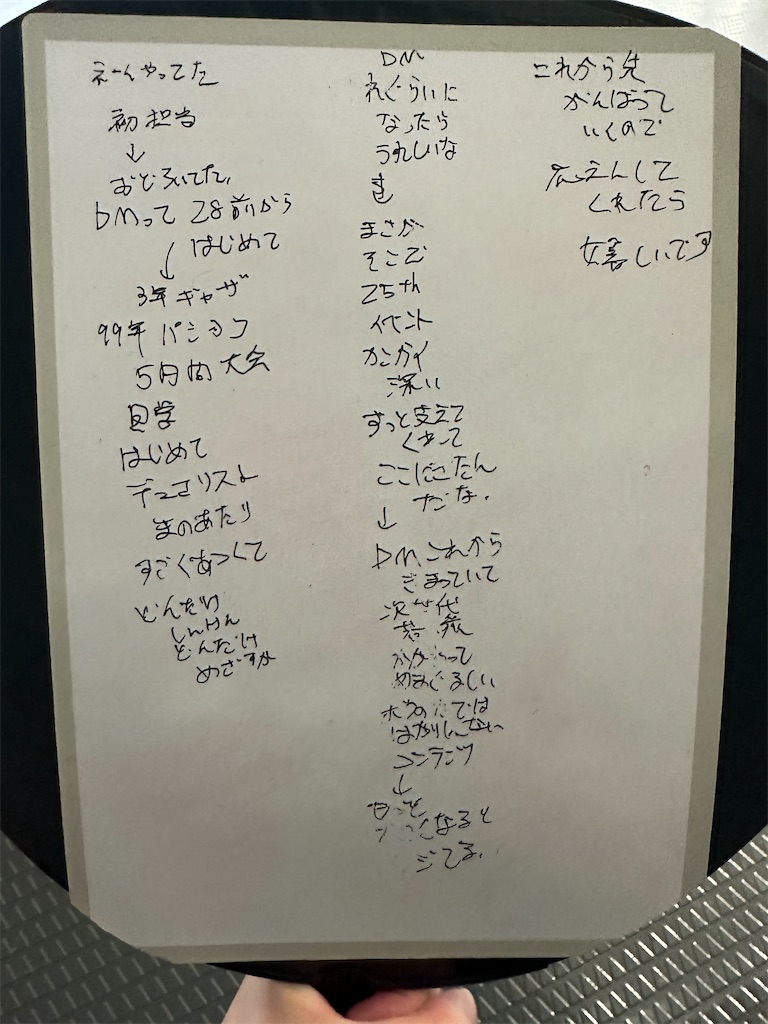 えーんやってた
初担当
↓
おどろいてた、
DMって 28前から
↓ はじめて
3年ギャザ
99年 パシヨン
5月 大会
見学
はじめて
デュエリスト
まのあたり
すごくあつくて
どんだけ
しんけん
どんだけ
めざすか
DM
れぐらいに
なったら
うれしいな
まさか
そこで
25th
イベント
カンガイ
深い
ずっと支えて
くれて
ここに
だな.
↓
DM これから
きまっていて
次世代
かかわって
めまぐるしい
では
はかりしれない
コンテンツ
↓
なると
ジてる.
これから先
がんばって
いくので
応えんして
くれたら
嬉しいです